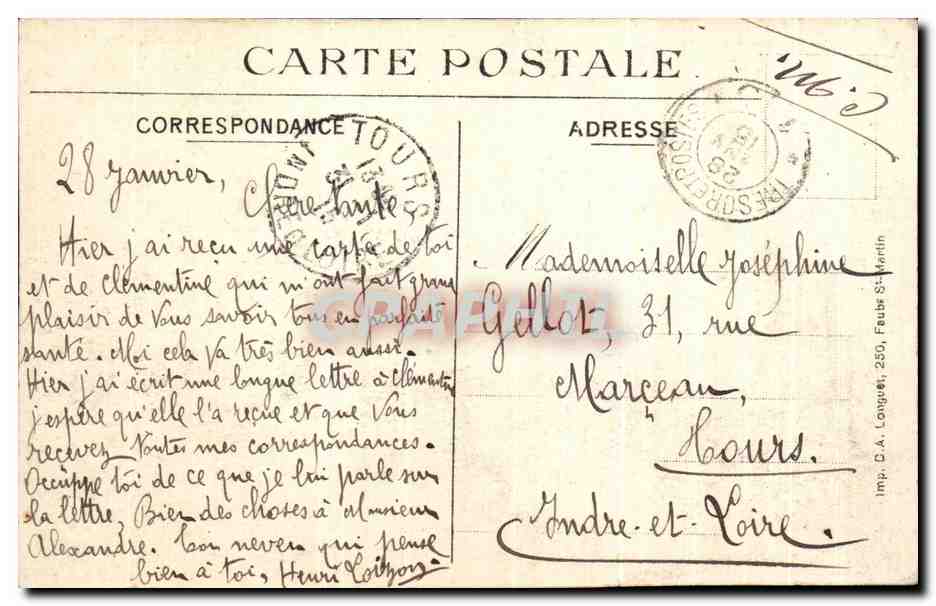 CARTE POSTALE
F. M.
CORRESPONDANCE
ADRESSE
TOURS
TRESOR ET POSTES
28
28 Janvier,
Chère tante
Hier j'ai reçu une carte de toi
et de Clémentine qui m'ont fait grand
plaisir de vous savoir tous en parfaite
santé. Moi cela va très bien aussi.
Hier j'ai écrit une longue lettre à Clémentine
j'espère qu'elle l'a reçue et que vous
recevez toutes mes correspondances.
Occuppe toi de ce que je lui parle sur
la lettre, Bien des choses à Monsieur
Alexandre. Ton neveu qui pense
bien à toi, Henri
Mademoiselle Joséphine
31, rue
Marceau,
Tours.
Indre-et-Loire.
Imp. D.A. Longuet, 250, Faubg St-Martin